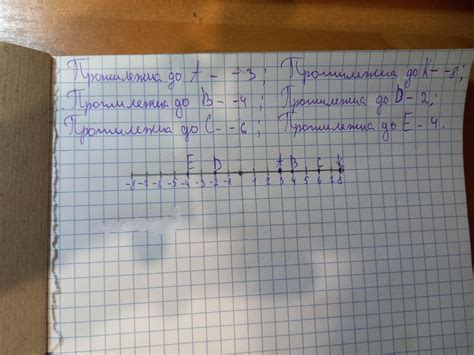 Протилежна до A – -3; Протилежна до K – -8;
Протилежна до B – -4; Протилежна до D – 2;
Протилежна до C – -6; Протилежна до E – 4.
E D A B C K
-8 -7 -6 -5 -4 -3 -2 -1 1 2 3 4 5 6 7 8